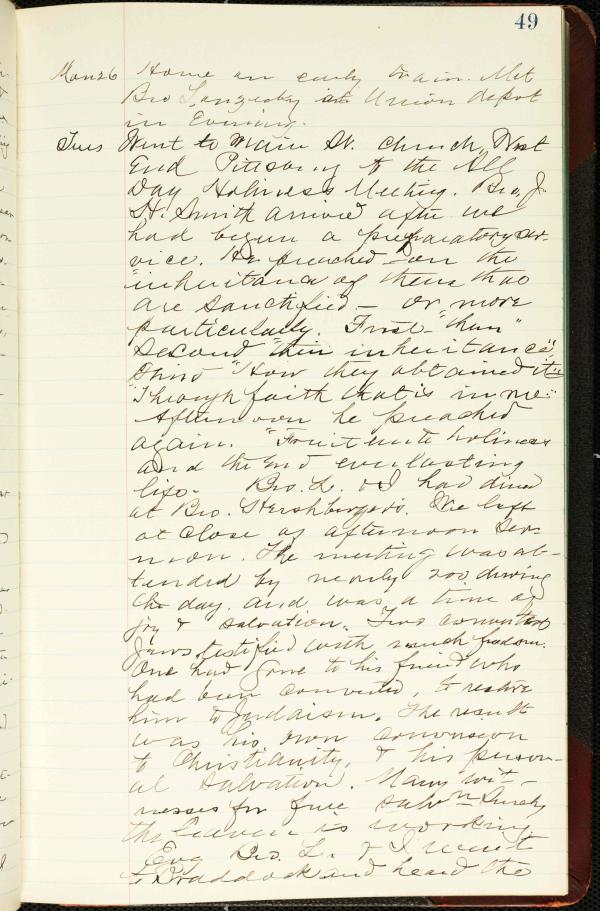 49
Mon 26 Home on early train. Met
Bro at Union depot
in Evening.
Tues Went to Main St. Church, West
End Pittsburg to the All
Day Holiness Meeting. Bro. J.
H. Smith arrived after we
had begun a preparatory ser-
vice. He preached on the
"inheritance of them that
are sanctified — or more
particularly. First - "them"
Second "their inheritance",
Third "How they obtained it"
"Through faith that is in me."
Afternoon he preached
again. "Fruit unto holiness
and the end everlasting
life. Bro. L. & I had dined
at Bro. Hershberger's. We left
at close of afternoon Ser-
mon. The meeting was at-
tended by nearly 200 during
the day. and was a time of
joy & salvation. Two converted
Jews testified with much freedom.
One had gone to his friend who
had been converted, to restore
him to Judaism. The result
was his own conversion
to Christianity, & his person-
al salvation. Many wit-
nesses for free salvn Surely
the leaven is working
Evg Bro. L. & I went
to Braddock and heard the